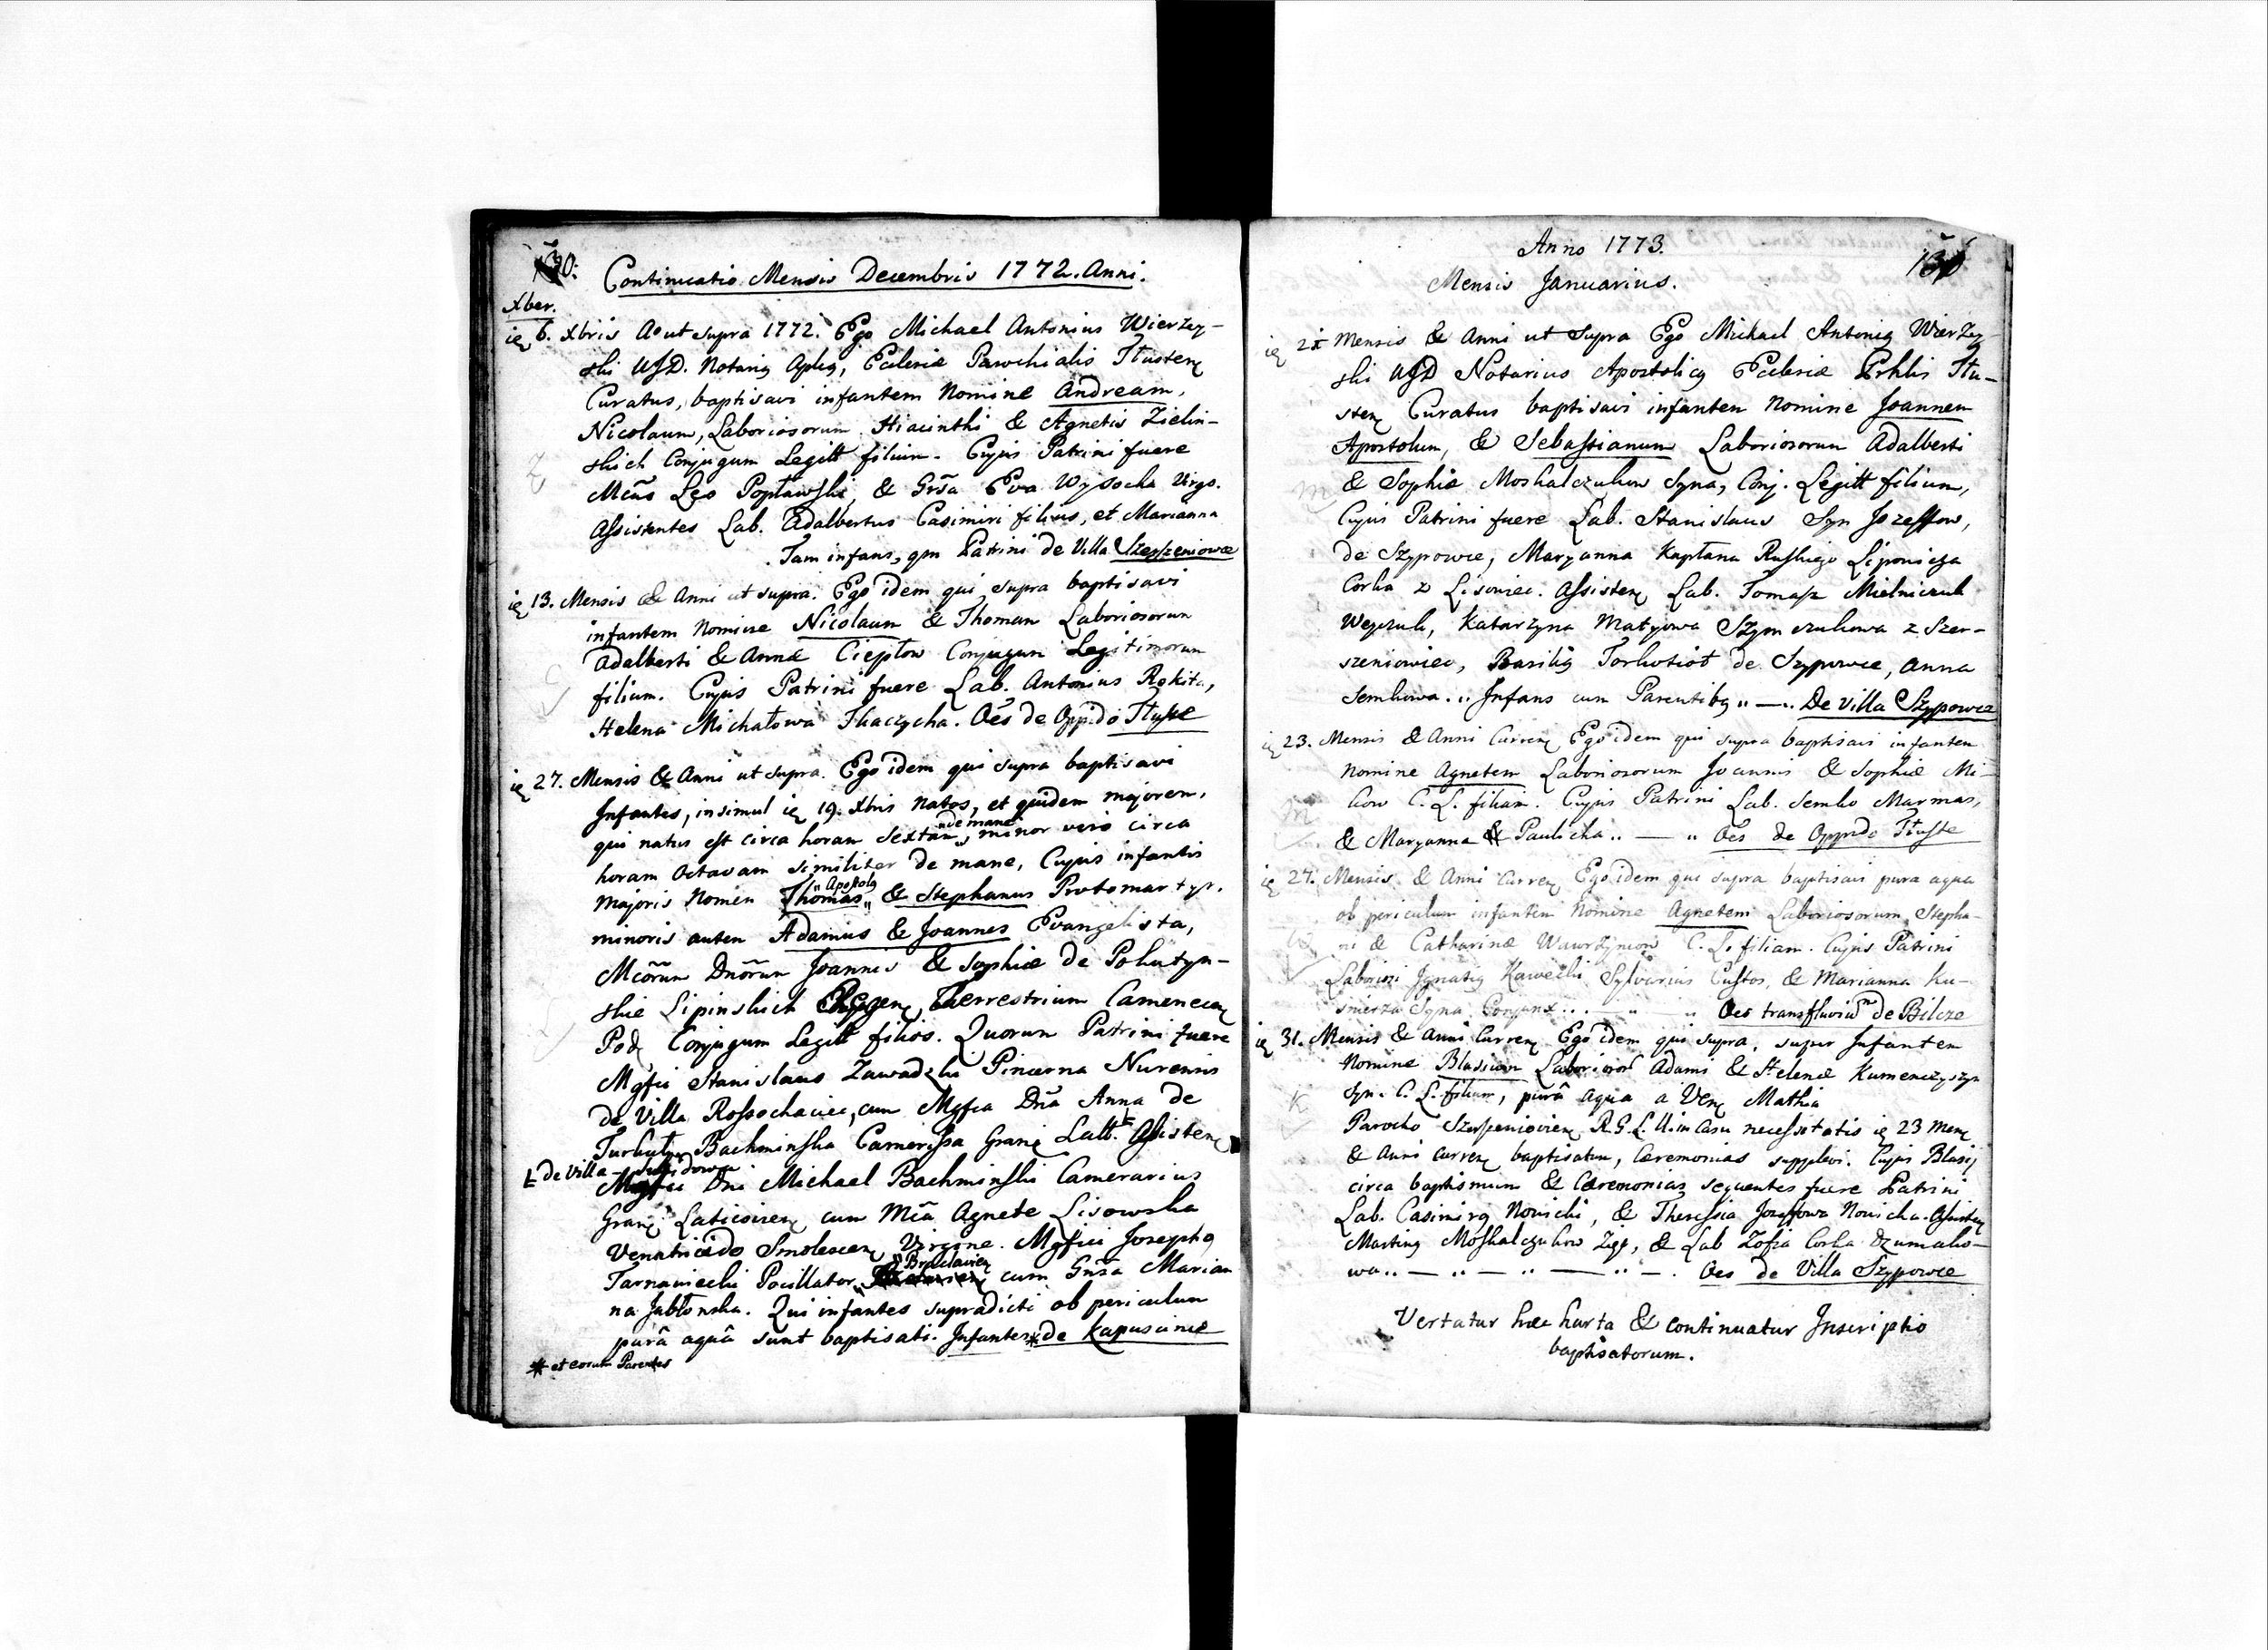 130:
Continuatio Mensis Decembris 1772. Anni.
Xber.
ie 6. Xbris Ao ut supra 1772. Ego Michael Antonius Wierzey-
ski UJD. Notarig Aplig, Ecclesiæ Parochialis Tłusten
Curatus, baptisavi infantem Nomine Andream,
Nicolaum, Laboriosorum Hiacinthi & Agnetis Zielin-
skich Conjugum Legitt filium. Cujus Patrini fuere
Mcūs Leo Popławski, & Grsa Eva Wysocka Virgo.
Assistentes Lab. Adalbertus Casimiri filius, et Marianna
Tam infans, qm Patrini de Villa Szerszeniowce
Z
ie 13. Mensis & Anni ut supra. Ego idem qui supra baptisavi
infantem Nomine Nicolaum & Thomam Laboriosorum
Adalberti & Annæ Ciepłow Conjugum Legitimorum
filium. Cujus Patrini fuere Lab. Antonius Rokita,
Helena Michałowa Tkaczycha. Oēs de Oppido Tłuste
C
ie 27. Mensis & Anni ut supra. Ego idem qui supra baptisavi
Infantes, insimul ie 19. Xbris natos, et quidem majorem,
qui natus est circa horam Sextam "de mane" minor vero circa
horam Octavam similiter de mane, Cujus infantis
majoris Nomen Thomas "Apostolg" & Stephanus Protomartyr.
minoris autem Adamus & Joannes Evangelista,
Mcōrum Dnōrum Joannis & Sophiæ de Pohutyn-
skie Lipinskich Terrestrium Camenecen
Pod Conjugum Legitt filios. Quorum Patrini fuere
Mgfci Stanislaus Zawadzki Pincerna Nurensis
de Villa Rossochaciec, cum Mgfca Dnā Anna de
Turkułow Bachminska Camerissa Grani Latt. Assisten
L de Villa
Mgfci Dni Michael Bachminski Camerarius
Grani Laticovien cum Mcā Agnete Lisowska
Venatricido Smolescen, Virgine. Mgfici Josephg
Tarnawiecki Pocillator "Braclavien cum Grsa Marian
na Jabłonska. Qui infantes supradicti ob periculum
purâ aquâ sunt baptisati. Infantes * de Kapuscince
* et eorum Parentes
L
Anno 1773.
Mensis Januarius.
131
ie 21 Mensis & Anni ut Supra Ego Michael Antonig Wierzey
ski UJD Notarius Apostolicg Ecclesiæ Prhlis Tłu-
sten Curatus baptisavi infantem Nomine Joannem
Apostolum, & Sebastianum Laboriosorum Adalberti
& Sophiæ Moskalczukow Syna, Conj. Legitt filium,
Cujus Patrini fuere Lab. Stanislaus Syn Jozeffow,
de Szypowce, Maryanna Kapłana Ruskiego Liponicza
Corka z Lisowiec. Assisten Lab. Tomasz Mielniczuk
Weyczuk, Katarzyna Matyiowa Szymczukowa z Szer-
szeniowiec, Basilig Torkotiot de Szypowce, Anna
Semkowa. " Infans cum Parentibg " — " De Villa Szypowce
M
ie 23. Mensis & Anni Curren Ego idem qui supra baptisavi infantem
Nomine Agnetem Laboriosorum Joannis & Sophiæ Mi-
kow C. L. filiam. Cujus Patrini Lab. Semko Marmas,
& Maryanna Paulicha " — " Oēs de Oppido Tłuste
M
ie 27. Mensis & Anni Curren Ego idem qui supra baptisavi pura aqua
ob periculum infantem Nomine Agnetem Laboriosorum Stepha-
ni & Catharinæ Wawrzynow C. L. filiam. Cujus Patrini
Laboriosi Ignatig Kawecki Sylvarius Custos, & Marianna Ku-
snierza Syna Conjunx " — " Oes transfluviū de Bilcze
W
ie 31. Mensis & Anni Curren Ego idem qui supra, super Infantem
Nomine Blasium Laborior Adami & Helenæ Kumenczyszyn
Syn. C. L. filium, purâ aqua a Ven Mathia
Parocho Szerszeniovien R.G.L.U. in Casu necessitatis ie 23 Men
& Anni Curren baptisatum, Cæremonias supplevi. Cujus Blasij
circa baptismum & Cæremonias sequentes fuere Patrini
Lab. Casimirg Nowicki, & Theressia Jozeffowa Nowicka. Assisten
Marting Moskalczukow Zięć, & Lab Zofia Corka Dzumako-
wa " — " — " — " — . Oes de Villa Szypowce
K
Vertatur hæc harta & continuatur Inscriptio
baptisatorum.